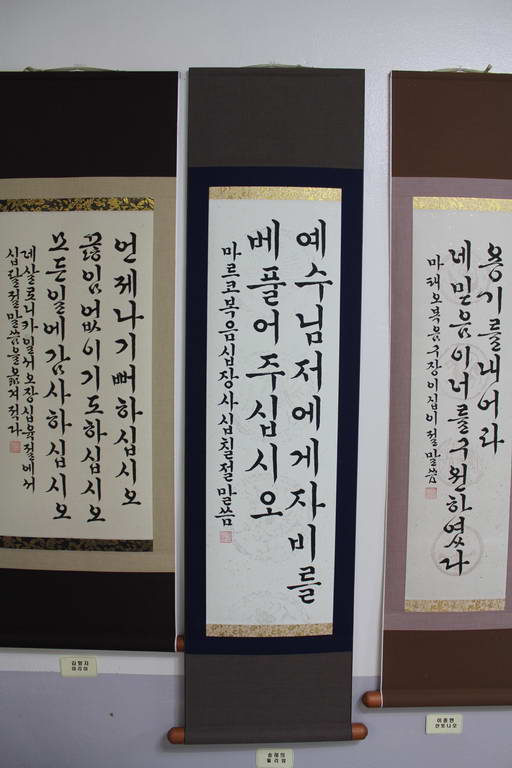 언제나기뻐하십시오
끊임없이기도하십시오
모든일에감사하십시오
데살로니카일서오장십육절에서
십팔절말씀을옮겨적다
예수님저에게자비를
베풀어주십시오
마르코복음십장사십칠절말씀
용기를내어라
네믿음이너를구원하였다
마태오복음구장이십이절말씀
마리아
안토니오